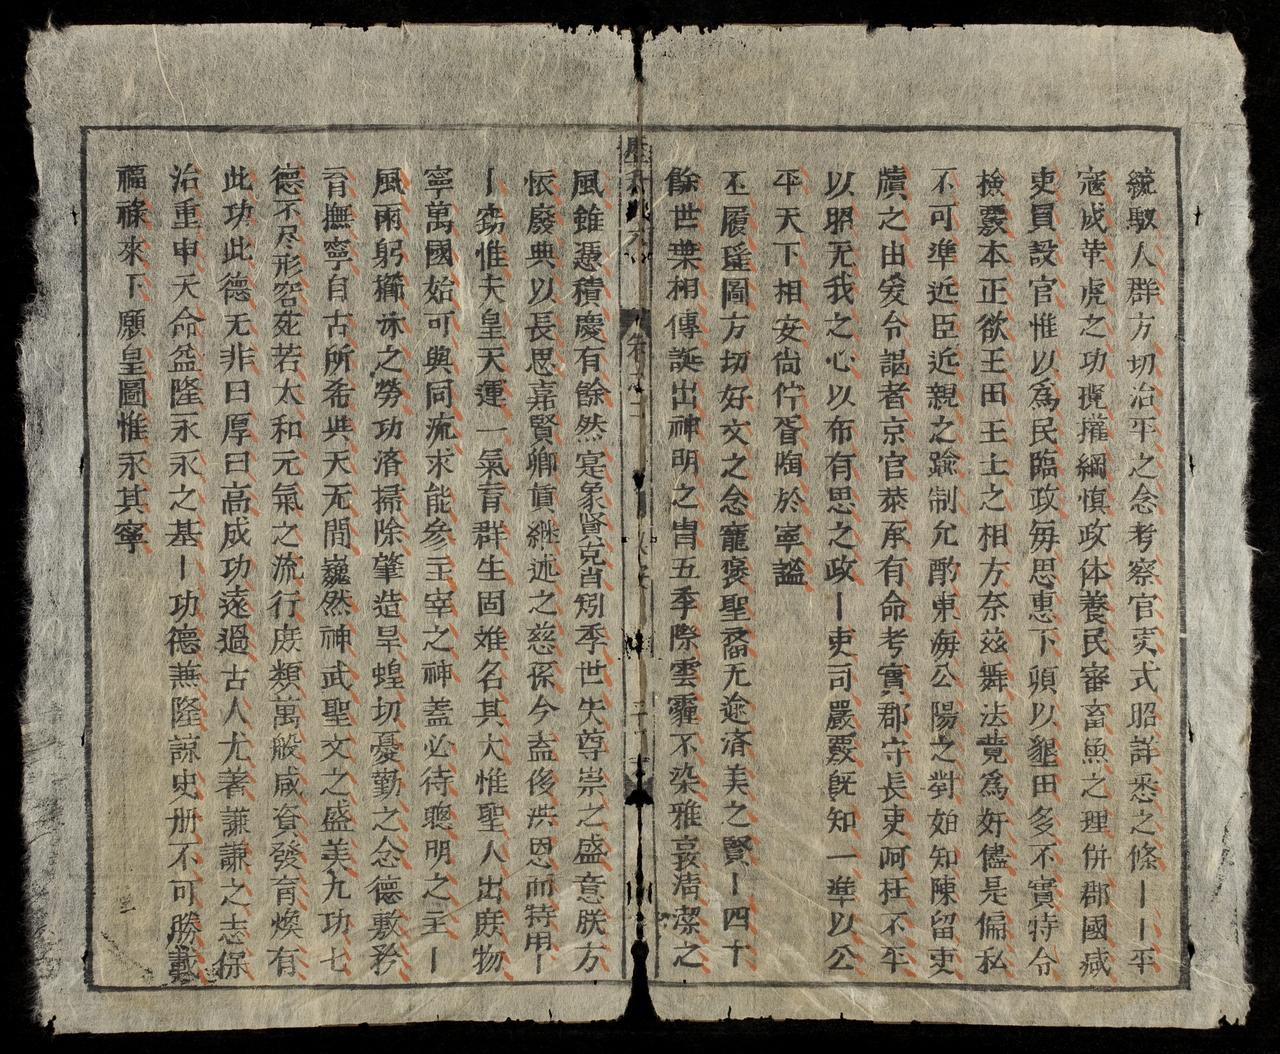 統馭人群方切治平之念考察官吏式昭詳悉之條丨丨平
寇成革虎之功攬權綱慎政体養民審畜魚之理併郡國减
吏員設官惟以為民臨政每思惠下頃以墾田多不實特令
檢覈本正欲王田王土之相方奈茲舞法竟為奸儘是偏私
不可準近臣近親之踰制允酌東海公陽之對如知陳留吏
牘之由爰令謁者京官恭承有命考實郡守長吏阿枉不平
以昭无我之心以布有思之政丨吏司嚴覈既知一準以公
平天下相安尚佇胥陶於寧謐
丕履瑤圖方切好文之念寵褒聖裔无逾済美之賢丨四十
餘世葉相傳誕出神明之胄五季際雲霾不染雅裒清潔之
風雖憑積慶有餘然寔象賢克肖矧季世失尊崇之盛意朕方
恢廢典以長思嘉賢卿眞継述之慈孫今盍俊洪恩而特用丨
丨窃惟夫皇天運一氣育群生固难名其大惟聖人出庻物
寧萬國始可與同流求能參主宰之神盖必待聰明之主丨
風雨躬獮狝之勞功済掃除肇造旱蝗切憂勤之念德敷矜
育撫寧自古所希與天无間巍然神武聖文之盛美九功七
德不尽形容茫若太和元氣之流行庻類萬般咸資發育煥有
此功此德无非曰厚曰高成功遠過古人尤著謙謙之志保
治重申天命益隆永永之基丨功德兼隆諒史册不可勝載
福祿來下願皇圖惟永其寧
三